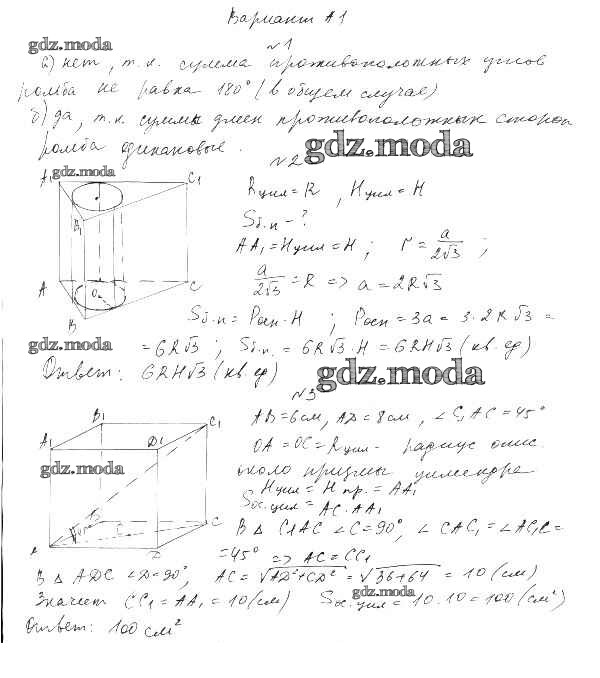 Вариант А1
gdz.moda
№1
а) нет, т.к. сумма противоположных углов
ромба не равна 180° (в общем случае)
б) да, т.к. суммы длин противоположных сторон
ромба одинаковые.
gdz.moda
№2
gdz.moda
A1 C1 B1 A O C B
Rцил = R, Hцил = H
Sб.п - ?
AA1 = Hцил = H; r = a/2√3;
a/2√3 = R => a = 2R√3
Sб.п = Pосн · H; Pосн = 3a = 3·2R√3 =
gdz.moda
= 6R√3; Sб.п. = 6R√3·H = 6RH√3 (кв. ед)
Ответ: 6RH√3 (кв. ед)
gdz.moda
№3
B1 C1 A1 D1 45° C A D
gdz.moda
AB = 6 см, AD = 8 см, ∠C1AC = 45°
OA = OC = Rцил - радиус опис.
около призмы цилиндра
Hцил = Hпр. = AA1
Sос.цил = AC·AA1
В Δ C1AC ∠C = 90°, ∠CAC1 = ∠AC1C =
= 45° => AC = CC1
В Δ ADC ∠D = 90°, AC = √AD²+CD² = √36+64 = 10 (см)
gdz.moda
Значит CC1 = AA1 = 10 (см) Sос.цил = 10·10 = 100 (см²)
Ответ: 100 см²